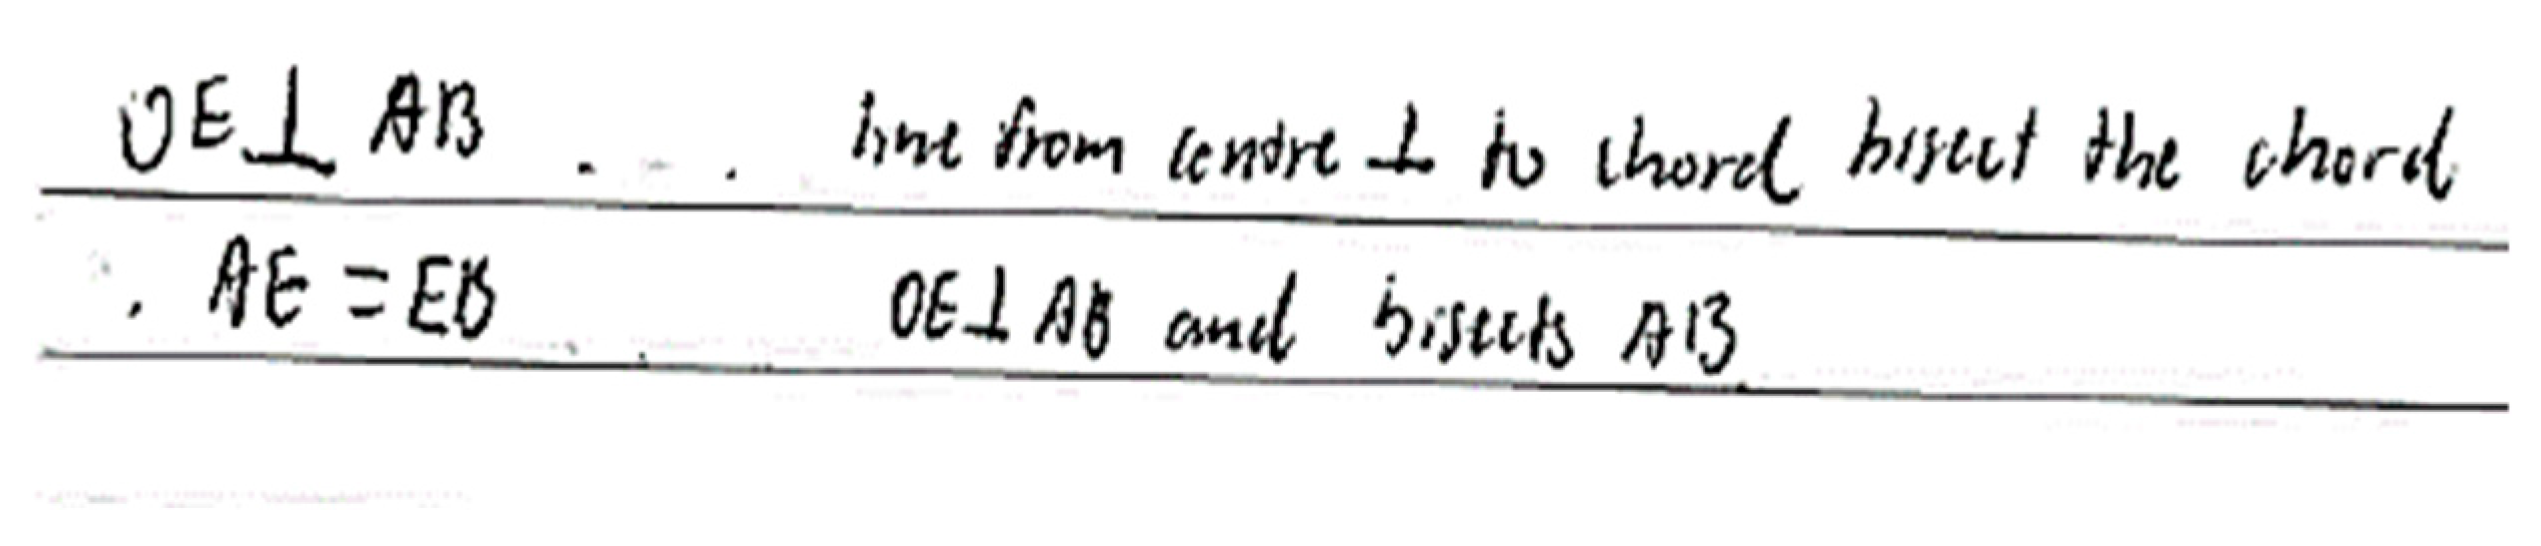 OE ⊥ AB . . . line from centre ⊥ to chord bisect the chord
. AE = EB OE ⊥ AB and bisects AB